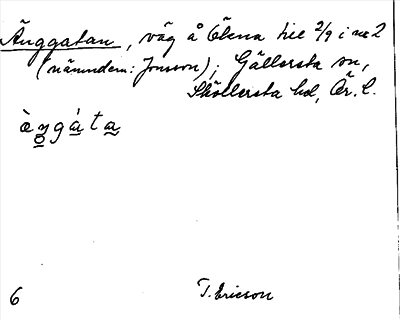 Änggatan, väg å Ökna hie 2/9 i nr 2
(nämndem: Jonsson); Gällersta sn,
Sköllersta hd, Ör. l.
àŋgáta
6 T. Ericson